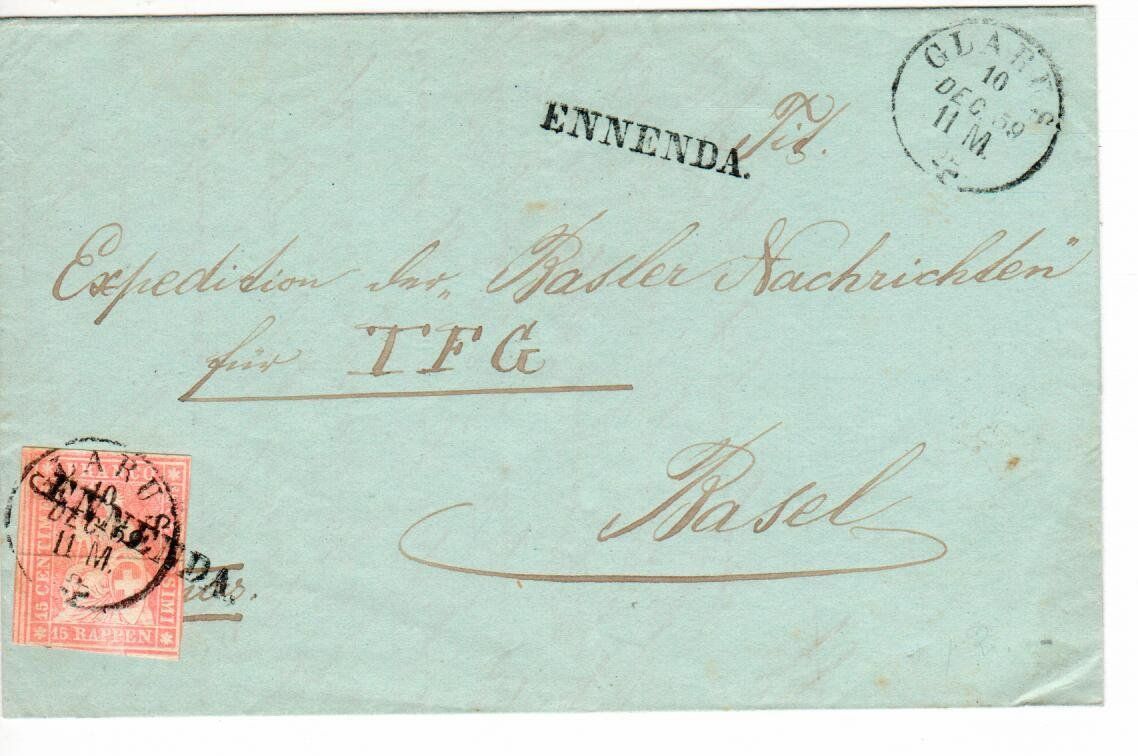 GLARUS
10
DEC 59
11 M.
ENNENDA.
Tit.
Expedition der „Basler Nachrichten“
für TFG
Basel
FRANCO
15 CENTIMES
15 RAPPEN
GLARUS
10
DEC 59
11 M.
ENNENDA.